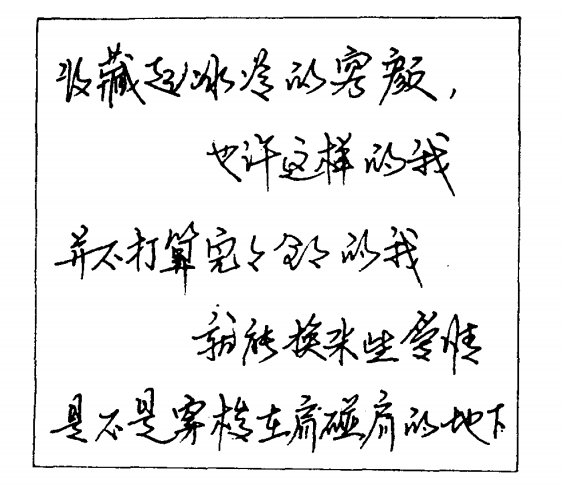 收藏起冰冷的容颜，
也许这样的我
并不打算完完全全的我
就能换来些爱情
是不是穿梭在肩碰肩的地下